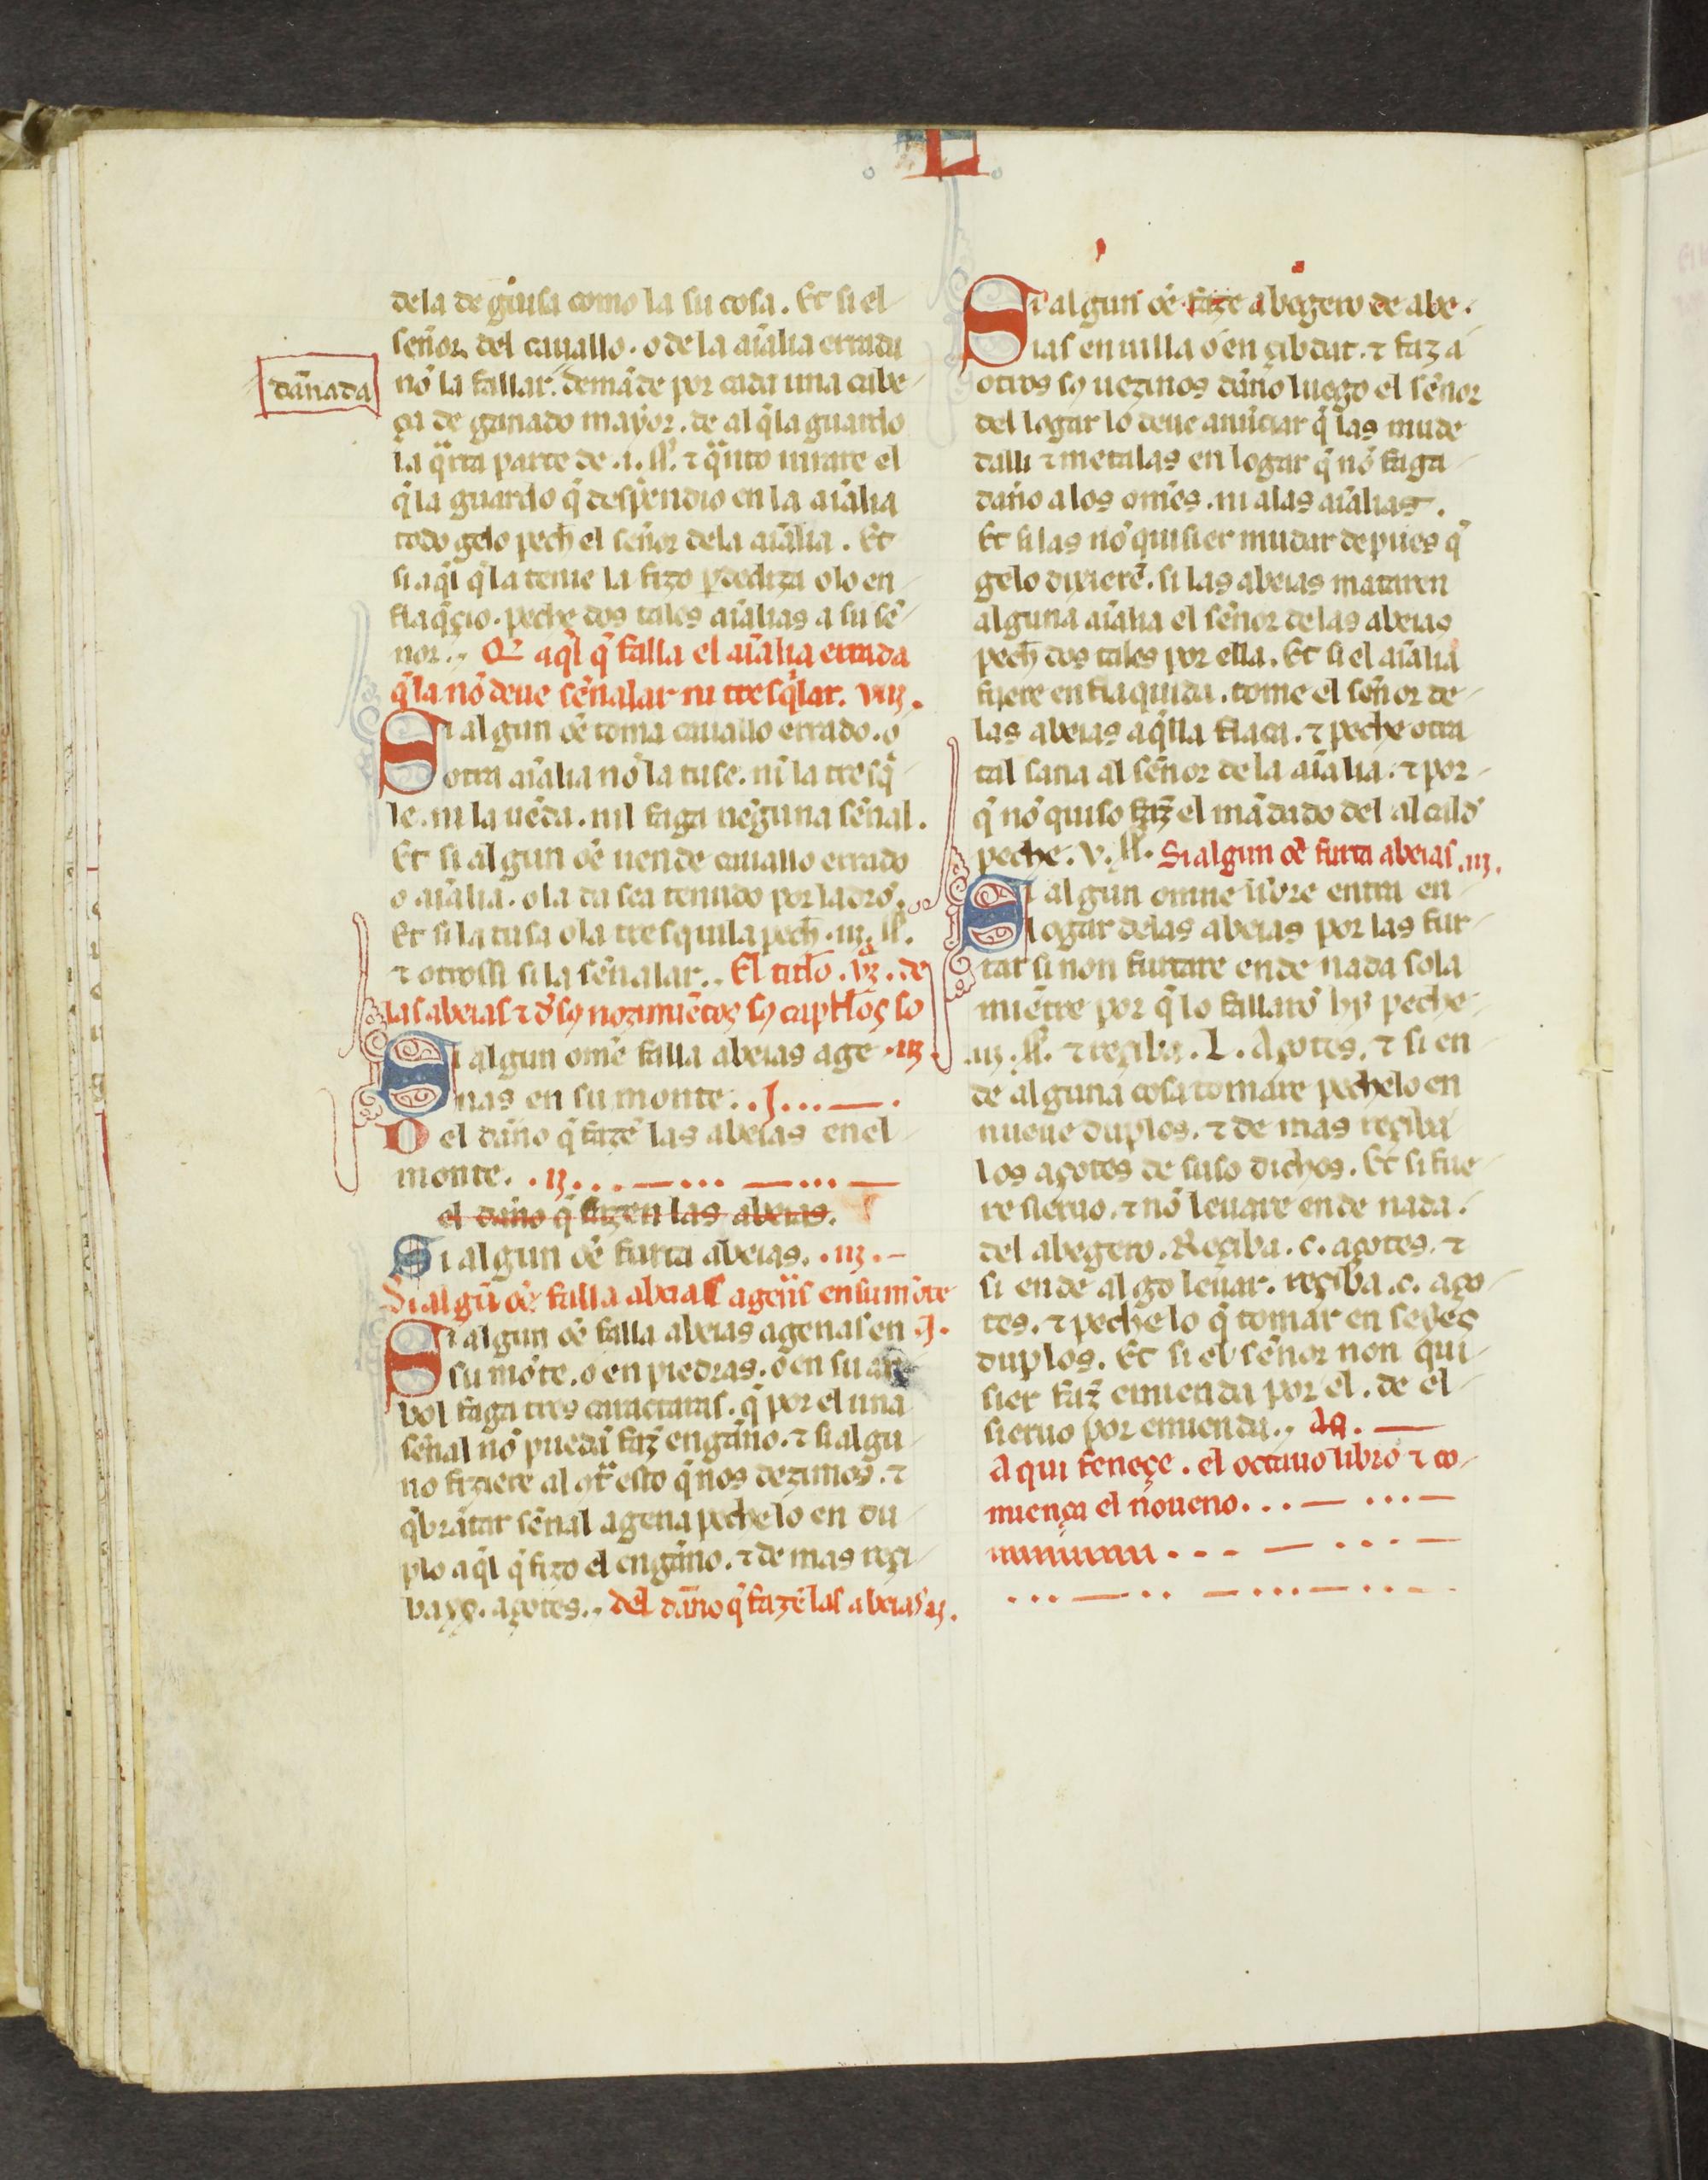 L
dela de guisa como la su cosa. Et si el
señor del cauallo. o de la aĩalia errada
dãnada
nõ la fallar. demãde por cada una cabe
ça de ganado mayor. de al q̃ la guardo
la q̃rta parte de .i. ss̃. ⁊ q̃nto iurare el
q̃ la guardo q̃ despendio en la aĩalia
todo gelo pech̃ el señor dela aĩalia. Et
si aq̃l q̃ la tenie la fizo ꝑdediza o lo en
flaq̃çio. peche dos tales aĩalias a su sẽ
nor.. Q̃ aq̃l q̃ falla el aĩalia errada
q̃ la nõ deue señalar ni tresq̃lar. viij.
Si algun oẽ toma cauallo errado. o
otra aĩalia nõ la tuse. ni la tresq̃
le. ni la uẽda. nil faga neguna señal.
Et si algun oẽ uende cauallo errado
o aĩalia. o la da sea tenudo por ladrõ.
Et si la tusa o la tresquila pech̃ .iij. ss̃.
⁊ otrossi si la señalar.. El titlo .vjº. de
las abeias ⁊ d̃ sꝯ nozimiẽtos sꝯ capitlos so
Si algun omẽ falla abeias age .iij.
nas en su monte. .j. ... — .
D el daño q̃ fazẽ las abeias en el
monte. .ij. . . — ... — ... —
el daño q̃ fazen las abeias.
Si algun oẽ furta abeias. .iij. —
Si algũ oẽ falla abeias agenas en su mõte
Si algun oẽ falla abeias agenas en .j.
su mõte. o en piedras. o en su ar
bol faga tres caractaras. q̃ por el una
señal nõ pueda faz̃ engaño. ⁊ si algu
no fiziere al ꝯtra esto q̃ nos dezimos. ⁊
q̃brãtar señal agena pechelo en du
plo aq̃l q̃ fizo el engaño. ⁊ de mas reçi
ba xꝯ. açotes.. del daño q̃ fazẽ las abeias ij.
Si algun oẽ faze abegero de abe.
ias en uilla o en çibdat. ⁊ faz a
otros sꝯ uezinos daño luego el señor
del logar lo deue anũciar q̃ las mude
dalli ⁊ metalas en logar q̃ nõ faga
daño a los omẽs. ni alas aĩalias.
Et si las nõ quisier mudar depues q̃
gelo dixierẽ. si las abeias mataren
alguna aĩalia el señor delas abeias
pech̃ dos tales por ella. Et si el aĩalia
fuere enflaquida. tome el señor de
las abeias aq̃lla flaca. ⁊ peche otra
tal sana al señor de la aĩalia. ⁊ por
q̃ nõ quiso faz̃ el mãdado del alcald̃
peche. v. ss̃. Si algun oẽ furta abeias .iij.
Si algun omne libre entra en
logar delas abeias por las fur
tar si non furtare ende nada sola
miẽtre por q̃ lo fallarõ hy peche
.iij. ss̃. ⁊ reçiba. L. Açotes. ⁊ si en
de alguna cosa tomare pechelo en
nueue duplos. ⁊ de mas reçiba
los açotes de suso dichos. Et si fue
re sieruo. ⁊ nõ leuare ende nada.
del abegero. Reçiba. c. açotes. ⁊
si ende algo leuar. reçiba .c. aço
tes. ⁊ pechelo q̃ tomar en seyes
duplos. Et si el señor non qui
sier faz̃ emienda por el. de el
sieruo por emienda..
A qui feneçe. el octauo libro ⁊ co
miença el noueno. . . — ... —